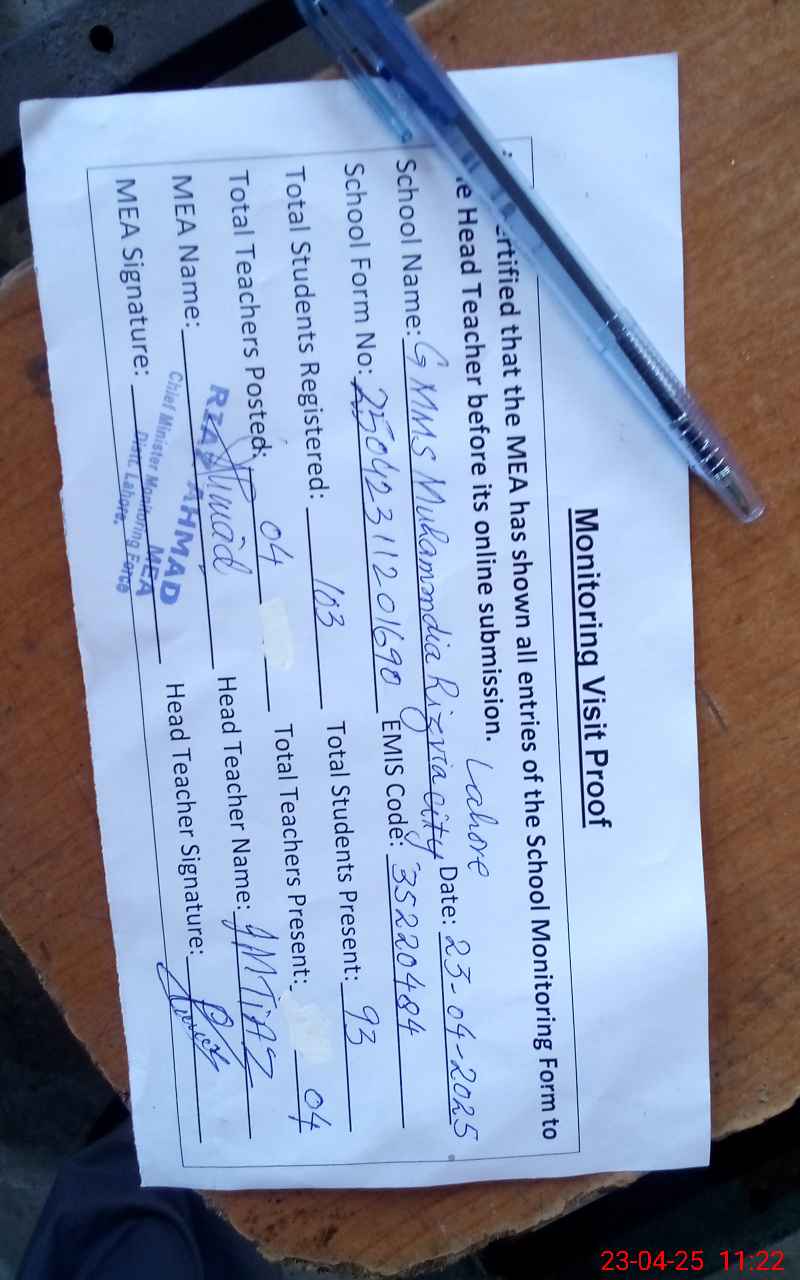 Monitoring Visit Proof
ertified that the MEA has shown all entries of the School Monitoring Form to
e Head Teacher before its online submission.
Lahore
School Name: GMMS Muhammdia Rizvia City Date: 23-04-2025
School Form No: 25042311201690 EMIS Code: 35220484
Total Students Registered: 103 Total Students Present: 93
Total Teachers Posted: 04 Total Teachers Present: 04
MEA Name: Head Teacher Name: IMTiAZ
AHMAD
MEA
Chief Minister Monitoring Force
Distt. Lahore.
MEA Signature: Head Teacher Signature:
23-04-25 11:22